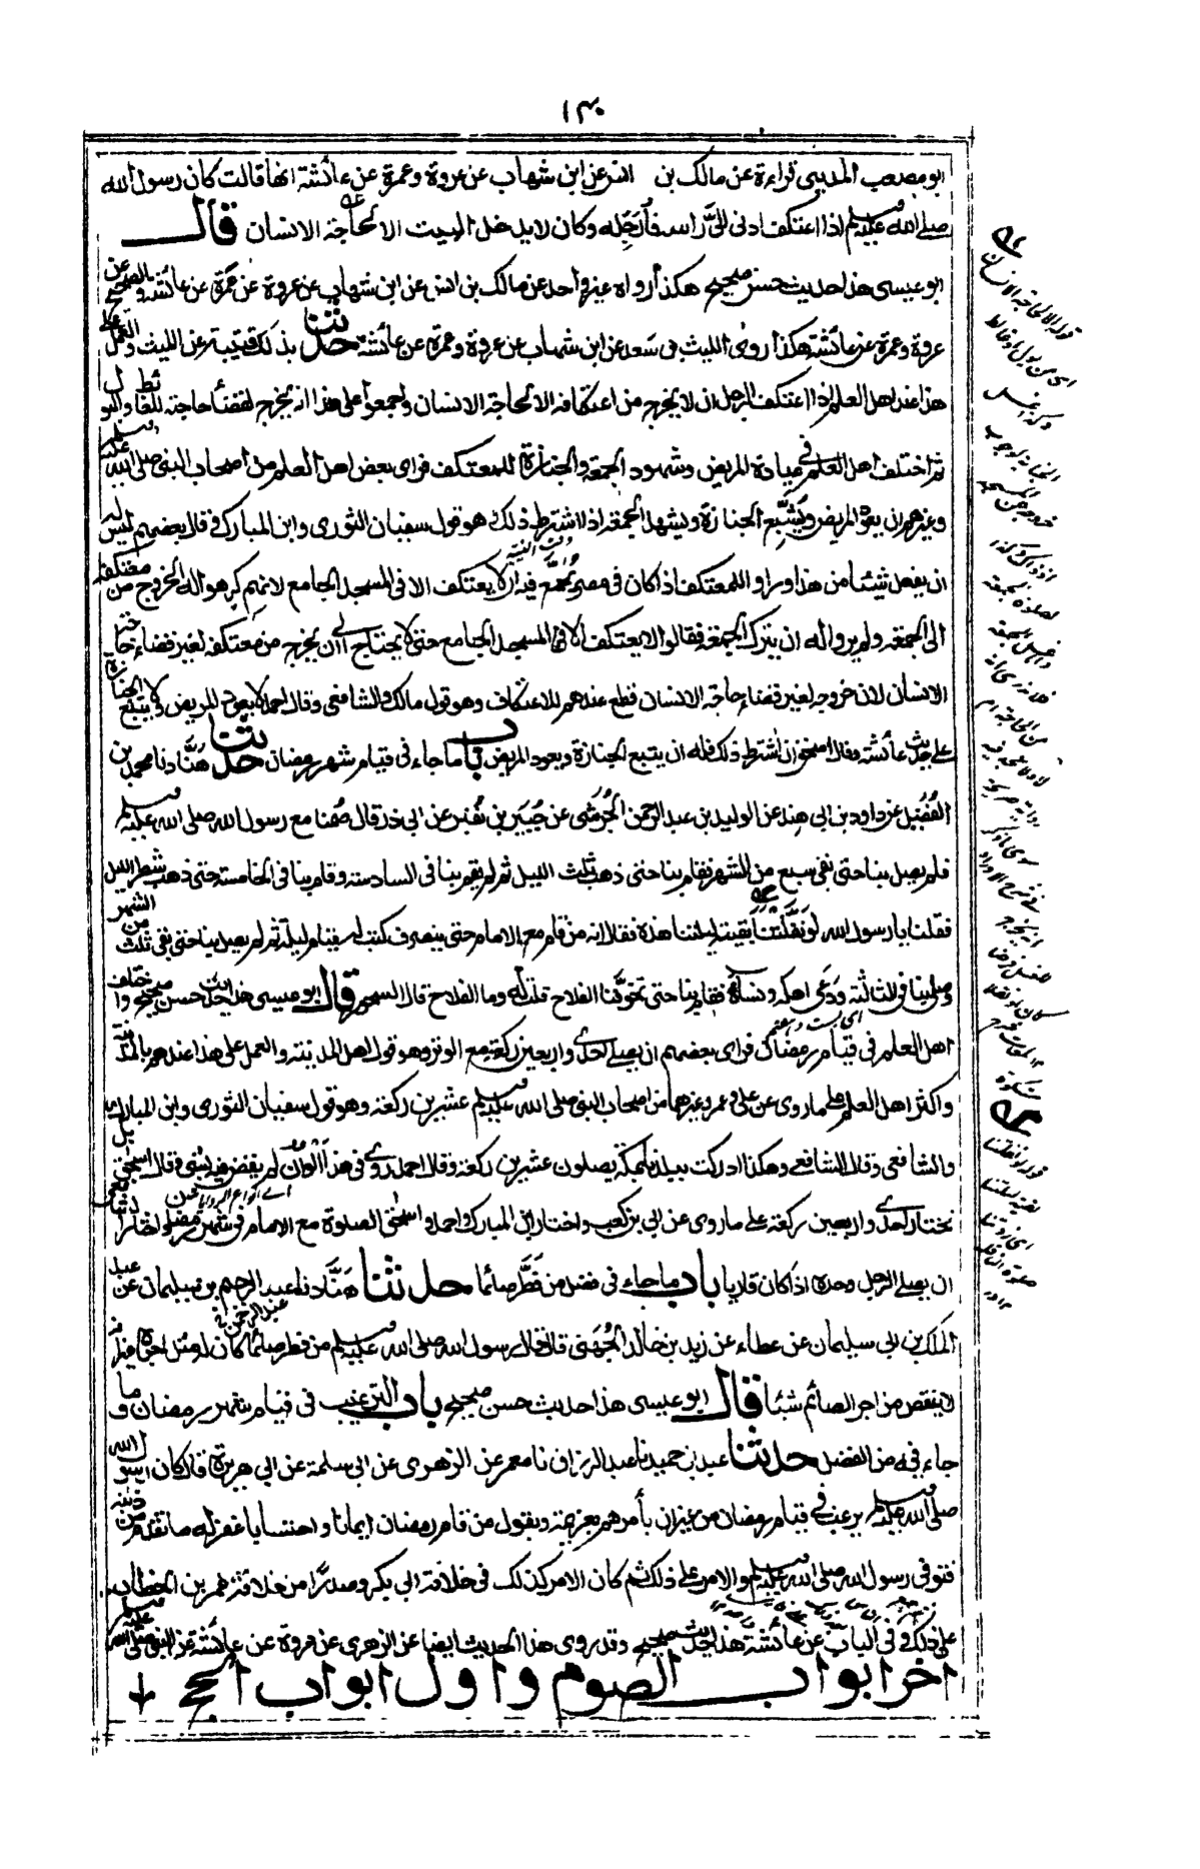 ١٣٠
ابو مصعب المديني قراءة عن مالك بن انس عن ابن شهاب عن عروة وعمرة عن عائشة انها قالت كان رسول الله
صلى الله عليه وسلم اذا اعتكف ادنى الىَّ راسه فأُرجِّله وكان لا يدخل البيت الا لحاجة الانسان قال
ابو عيسى هذا حديث حسن صحيح هكذا رواه غير واحد عن مالك بن انس عن ابن شهاب عن عروة عن عمرة عن عائشة والصحيح عن
عروة وعمرة عن عائشة هكذا روى الليث بن سعد عن ابن شهاب عن عروة وعمرة عن عائشة حدثنا بذلك قتيبة عن الليث والعمل على
هذا عند اهل العلم اذا اعتكف الرجل ان لا يخرج من اعتكافه الا لحاجة الانسان واجمعوا على هذا انه يخرج لقضاء حاجته للغائط والبول
ثم اختلف اهل العلم في عيادة المريض وشهود الجمعة والجنازة للمعتكف فراى بعض اهل العلم من اصحاب النبي صلى الله عليه وسلم
وغيرهم ان يعود المريض ويُشَيِّع الجنازة ويشهد الجمعة اذا اشترط ذلك وهو قول سفيان الثوري وابن المبارك وقال بعضهم ليس له
ان يفعل شيئا من هذا وراوا للمعتكف اذا كان في مصر يُجمَّع فيه ان لا يعتكف الا في المسجد الجامع لانهم كرهوا له الخروج من معتكفه
الى الجمعة ولم يروا له ان يترك الجمعة فقالوا لا يعتكف الا في المسجد الجامع حتى لا يحتاج الى ان يخرج من معتكفه لغير قضاء حاجة
الانسان لان خروجه لغير قضاء حاجة الانسان قطع عندهم للاعتكاف وهو قول مالك والشافعي وقال احمد لا يعود المريض ولا يتبع الجنازة
على حديث عائشة وقال اسحق ان اشترط ذلك فله ان يتبع الجنازة ويعود المريض باب ما جاء في قيام شهر رمضان حدثنا هَنَّاد نا محمد بن
الفُضَيل عن داود بن ابي هند عن الوليد بن عبد الرحمن الجُرَشي عن جُبَير بن نُفَير عن ابي ذر قال صُمنا مع رسول الله صلى الله عليه وسلم
فلم يصل بنا حتى بقي سبع من الشهر فقام بنا حتى ذهب ثلث الليل ثم لم يقم بنا في السادسة وقام بنا في الخامسة حتى ذهب شطر الليل
فقلنا يا رسول الله لو نَفَّلتَنا بقية ليلتنا هذه فقال انه من قام مع الامام حتى ينصرف كتب له قيام ليلة ثم لم يصل بنا حتى بقي ثلث من الشهر
وصلى بنا في الثالثة ودعى اهله ونساءه فقام بنا حتى تخوَّفنا الفلاح قلت له وما الفلاح قال السحور قال ابو عيسى هذا حديث حسن صحيح واختلف
اهل العلم في قيام رمضان فراى بعضهم ان يصلي احدى واربعين ركعة مع الوتر وهو قول اهل المدينة والعمل على هذا عندهم بالمدينة
واكثر اهل العلم على ما روى عن علي وعمر وغيرهما من اصحاب النبي صلى الله عليه وسلم عشرين ركعة وهو قول سفيان الثوري وابن المبارك
والشافعي وقال الشافعي وهكذا ادركت ببلدنا بمكة يصلون عشرين ركعة وقال احمد روي في هذا الوان لم يقض فيه بشي وقال اسحق بل
نختار احدى واربعين ركعة على ما روى عن ابي بن كعب واختار ابن المبارك واحمد واسحق الصلوة مع الامام في شهر رمضان واختار الشافعي
ان يصلي الرجل وحده اذا كان قاريا باب ما جاء في فضل من فَطَّر صائما حدثنا هَنَّاد نا عبد الرحيم بن سليمان عن عبد
الملك بن ابي سليمان عن عطاء عن زيد بن خالد الجُهَني قال قال رسول الله صلى الله عليه وسلم من فطر صائما كان له مثل اجره غير انه
لا ينقص من اجر الصائم شيئا قال ابو عيسى هذا حديث حسن صحيح باب الترغيب في قيام شهر رمضان وما
جاء فيه من الفضل حدثنا عبد بن حميد نا عبد الرزاق نا معمر عن الزهري عن ابي سلمة عن ابي هريرة قال كان رسول الله
صلى الله عليه وسلم يرغب في قيام رمضان من غير ان يأمرهم بعزيمة ويقول من قام رمضان ايمانا واحتسابا غفر له ما تقدم من ذنبه
فتوفي رسول الله صلى الله عليه وسلم والامر على ذلك ثم كان الامر كذلك في خلافة ابي بكر وصدرًا من خلافة عمر بن الخطاب
على ذلك وفي الباب عن عائشة هذا حديث صحيح وقد روى هذا الحديث ايضا عن الزهري عن عروة عن عائشة عن النبي صلى الله عليه وسلم
اخر ابواب الصوم واول ابواب الحج
قوله الا لحاجة الانسان
اى من بول او غائط